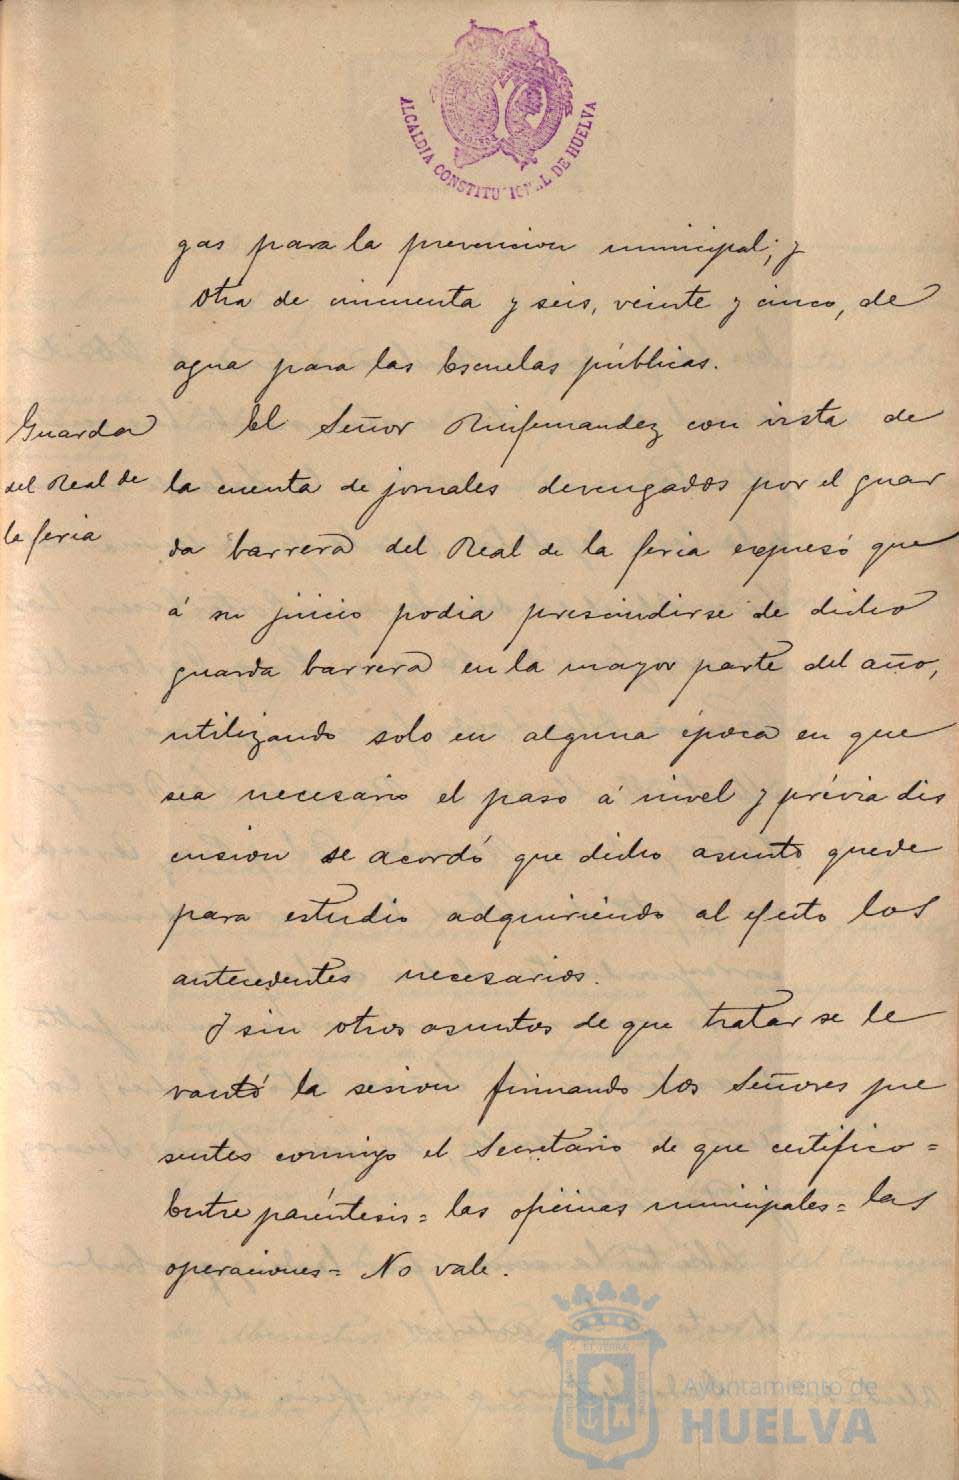 ALCALDIA CONSTITUCIONAL DE HUELVA
gas para la prevencion municipal; y
otra de cincuenta y seis, veinte y cinco, de
agua para las Escuelas públicas.
Guarda
del Real de
la feria
El Señor Ruifernandez con vista de
la cuenta de jornales devengados por el guar
da barrera del Real de la feria expresó que
á su juicio podia prescindirse de dicho
guarda barrera en la mayor parte del año,
utilizando solo en alguna época en que
sea necesario el paso á nivel y prévia dis
cusion se acordó que dicho asunto quede
para estudio adquiriendo al efecto los
antecedentes necesarios.
Y sin otros asuntos de que tratar se le
vantó la sesion firmando los Señores pre
sentes conmigo el Secretario de que certifico =
Entre paréntesis = las oficinas municipales = las
operaciones = No vale.
Ayuntamiento de
HUELVA